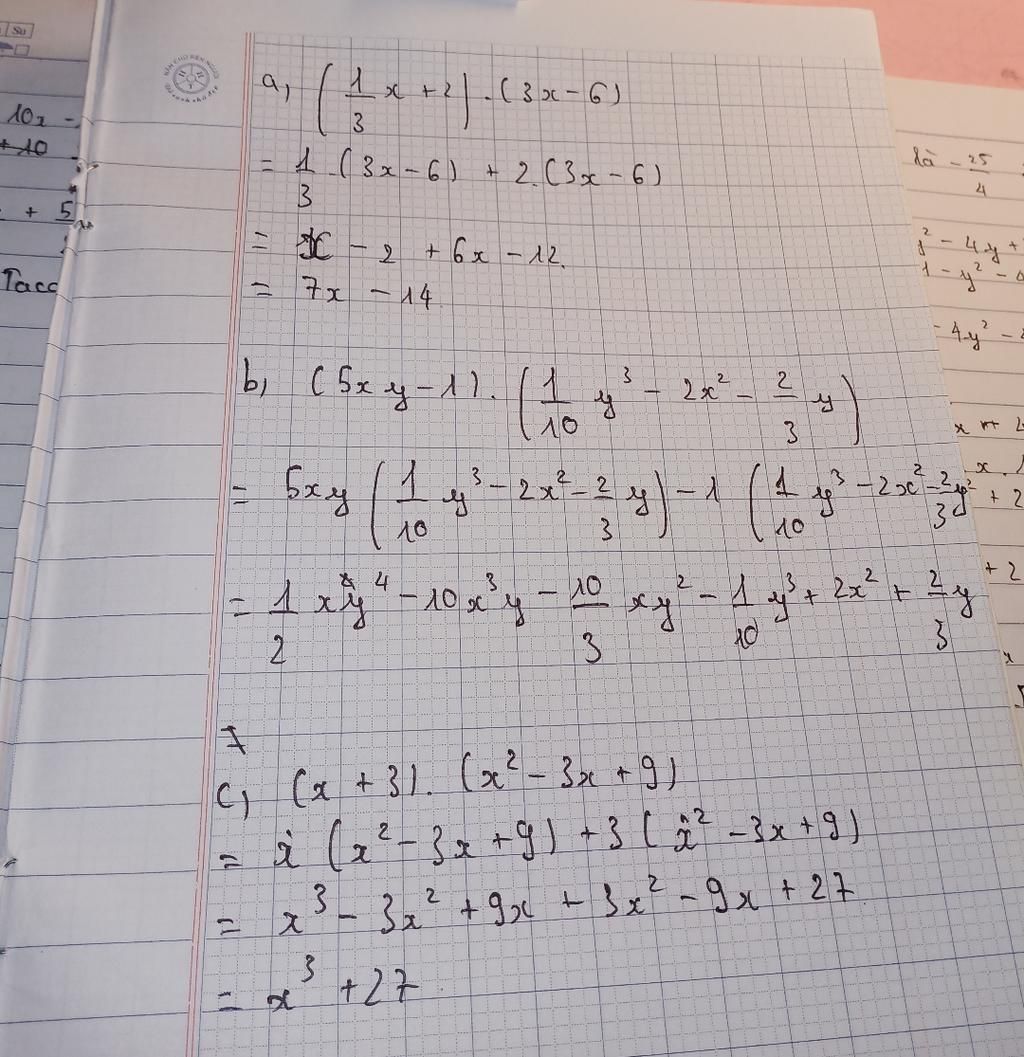 Su
10x -
+ 10
+ 5
Tacc
a, (1/3 x + 2) . (3x - 6)
= 1/3 . (3x - 6) + 2. (3x - 6)
= x - 2 + 6x - 12.
= 7x - 14
b, (5xy - 1). (1/10 y³ - 2x² - 2/3 y)
= 5xy (1/10 y³ - 2x² - 2/3 y) - 1 (1/10 y³ - 2x² - 2/3 y
= 1/2 xy⁴ - 10x³y - 10/3 xy² - 1/10 y³ + 2x² + 2/3 y
c, (x + 3). (x² - 3x + 9)
= x (x² - 3x + 9) + 3 (x² - 3x + 9)
= x³ - 3x² + 9x + 3x² - 9x + 27
= x³ + 27
là -25/4
y² - 4y +
1 - y² -
- 4y² -
+ 2
+ 2